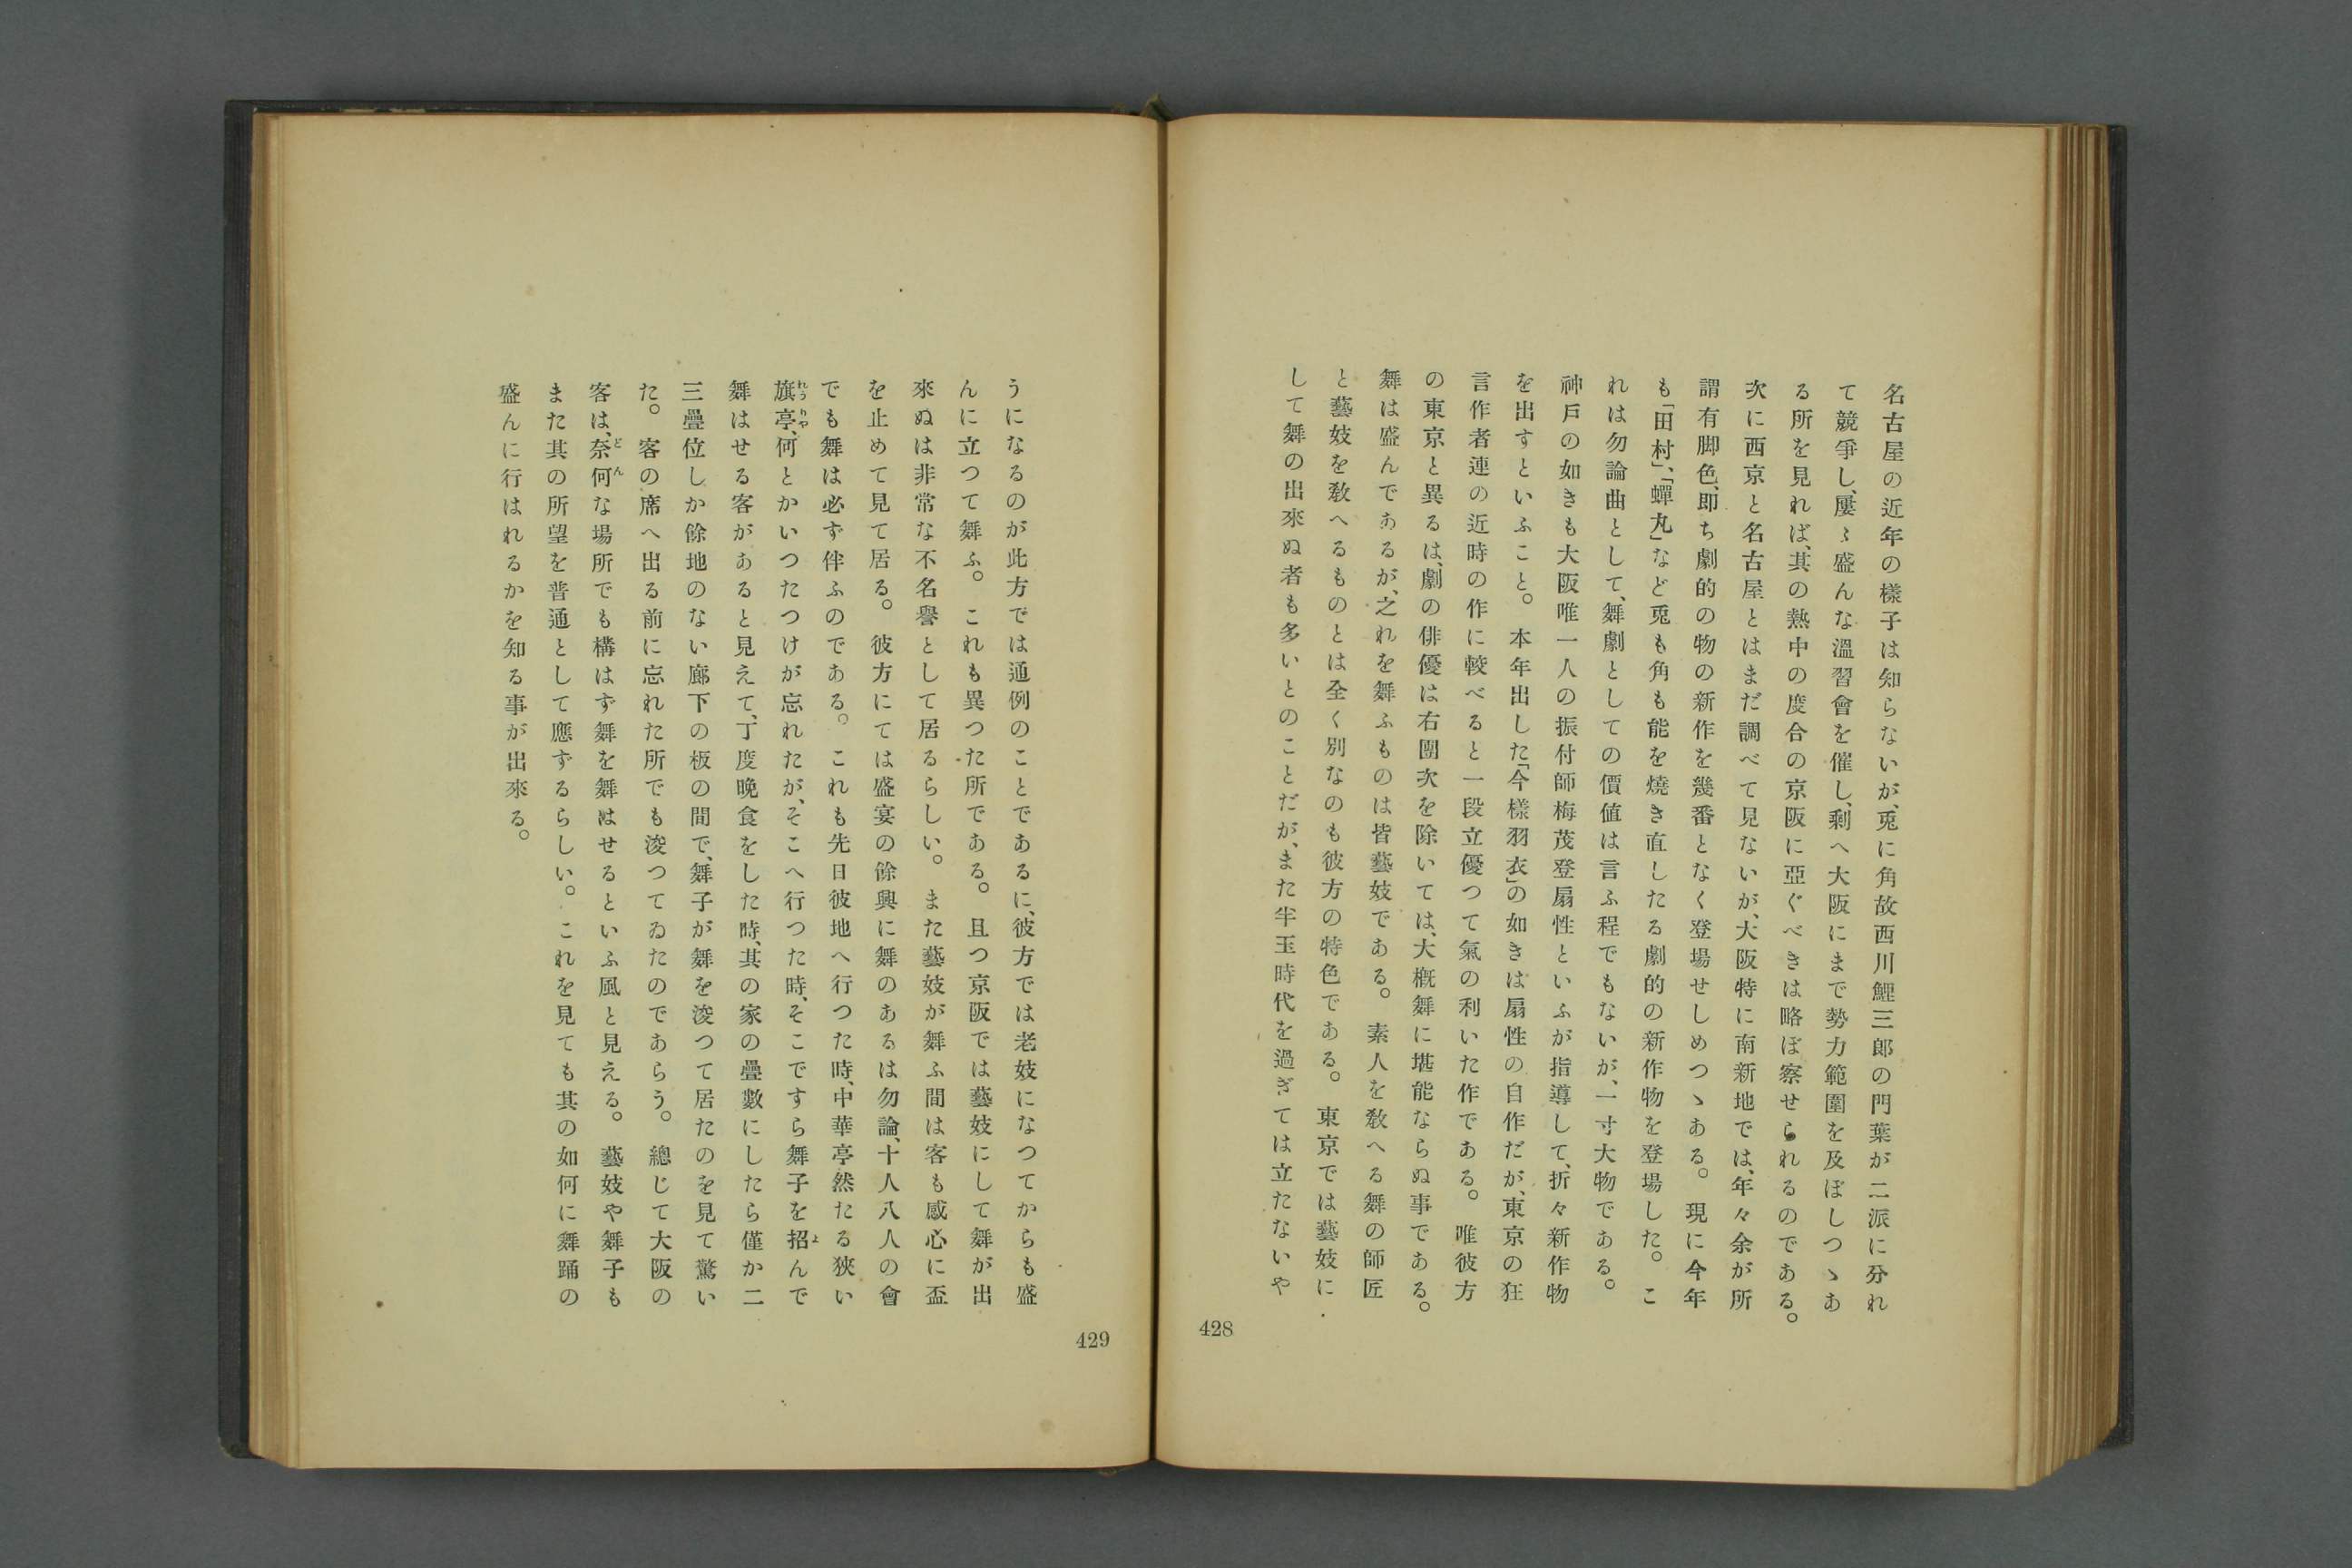 名古屋の近年の樣子は知らないが、兎に角故西川鯉三郎の門葉が二派に分れ
て競爭し、屢〻盛んな溫習會を催し、剩へ大阪にまで勢力範圍を及ぼしつゝあ
る所を見れば、其の熱中の度合の京阪に亞ぐべきは略ぼ察せられるのである。
次に西京と名古屋とはまだ調べて見ないが、大阪特に南新地では、年々余が所
謂有脚色、即ち劇的の物の新作を幾番となく登場せしめつゝある。現に今年
も「田村」、「蟬丸」など兎も角も能を燒き直したる劇的の新作物を登場した。こ
れは勿論曲として、舞劇としての價値は言ふ程でもないが、一寸大物である。
神戸の如きも大阪唯一人の振付師梅茂登扇性といふが指導して、折々新作物
を出すといふこと。本年出した「今樣羽衣」の如きは扇性の自作だが、東京の狂
言作者連の近時の作に較べると一段立優つて氣の利いた作である。唯彼方
の東京と異るは、劇の俳優は右團次を除いては、大槪舞に堪能ならぬ事である。
舞は盛んであるが、之れを舞ふものは皆藝妓である。素人を敎へる舞の師匠
と藝妓を敎へるものとは全く別なのも彼方の特色である。東京では藝妓に
して舞の出來ぬ者も多いとのことだが、また半玉時代を過ぎては立たないや
428
うになるのが此方では通例のことであるに、彼方では老妓になつてからも盛
んに立つて舞ふ。これも異つた所である。且つ京阪では藝妓にして舞が出
來ぬは非常な不名譽として居るらしい。また藝妓が舞ふ間は客も感心に盃
を止めて見て居る。彼方にては盛宴の餘興に舞のあるは勿論、十人八人の會
でも舞は必ず伴ふのである。これも先日彼地へ行つた時、中華亭然たる狹い
旗亭、何とかいつたつけが忘れたが、そこへ行つた時、そこですら舞子を招んで
舞はせる客があると見えて、丁度晩食をした時、其の家の疊數にしたら僅か二
三疊位しか餘地のない廊下の板の間で、舞子が舞を浚つて居たのを見て驚い
た。客の席へ出る前に忘れた所でも浚つてゐたのであらう。總じて大阪の
客は、奈何な場所でも構はず舞を舞はせるといふ風と見える。藝妓や舞子も
また其の所望を普通として應ずるらしい。これを見ても其の如何に舞踊の
盛んに行はれるかを知る事が出來る。
429